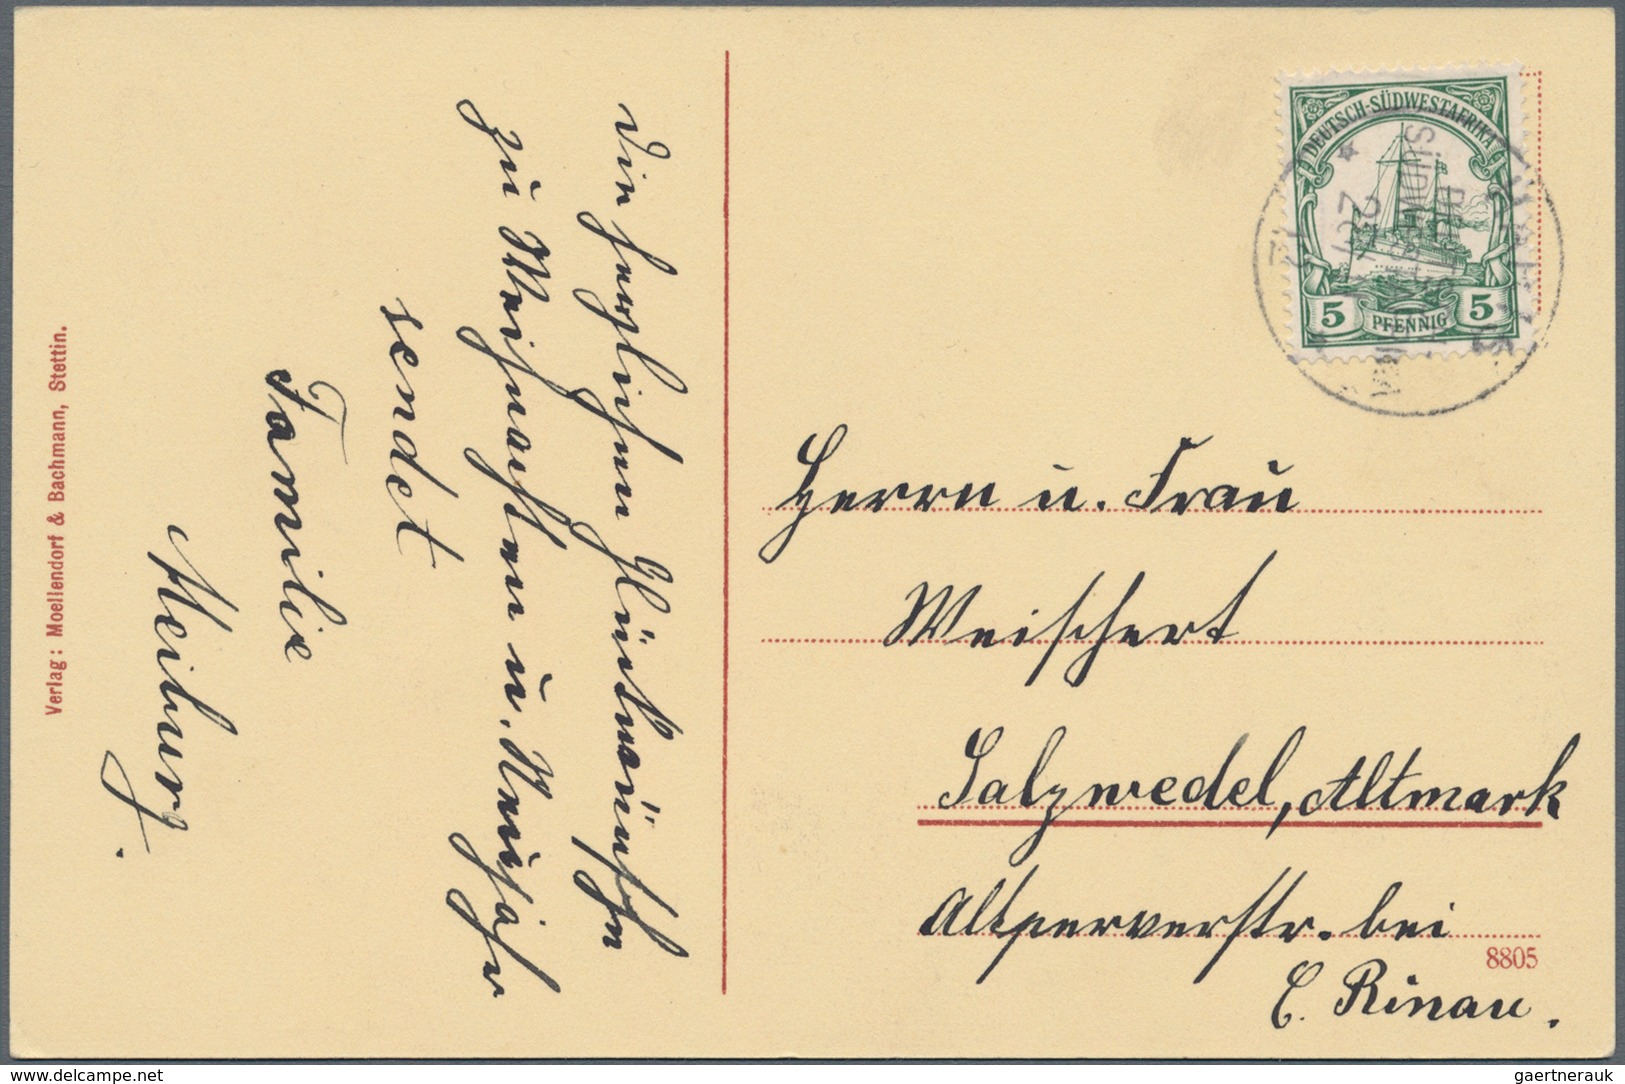 Die herzlichen Glückwünsche
zu Weihnachten u. Neujahr
sendet
Familie
Meiburg.
Verlag: Moellendorf & Bachmann, Stettin.
DEUTSCH-SÜDWESTAFRIKA
5 PFENNIG 5
Herrn u. Frau
Weischert
Salzwedel, Altmark
Altperverstr. bei
8805
C. Rinau.
delcampe.net
gaertnerauk